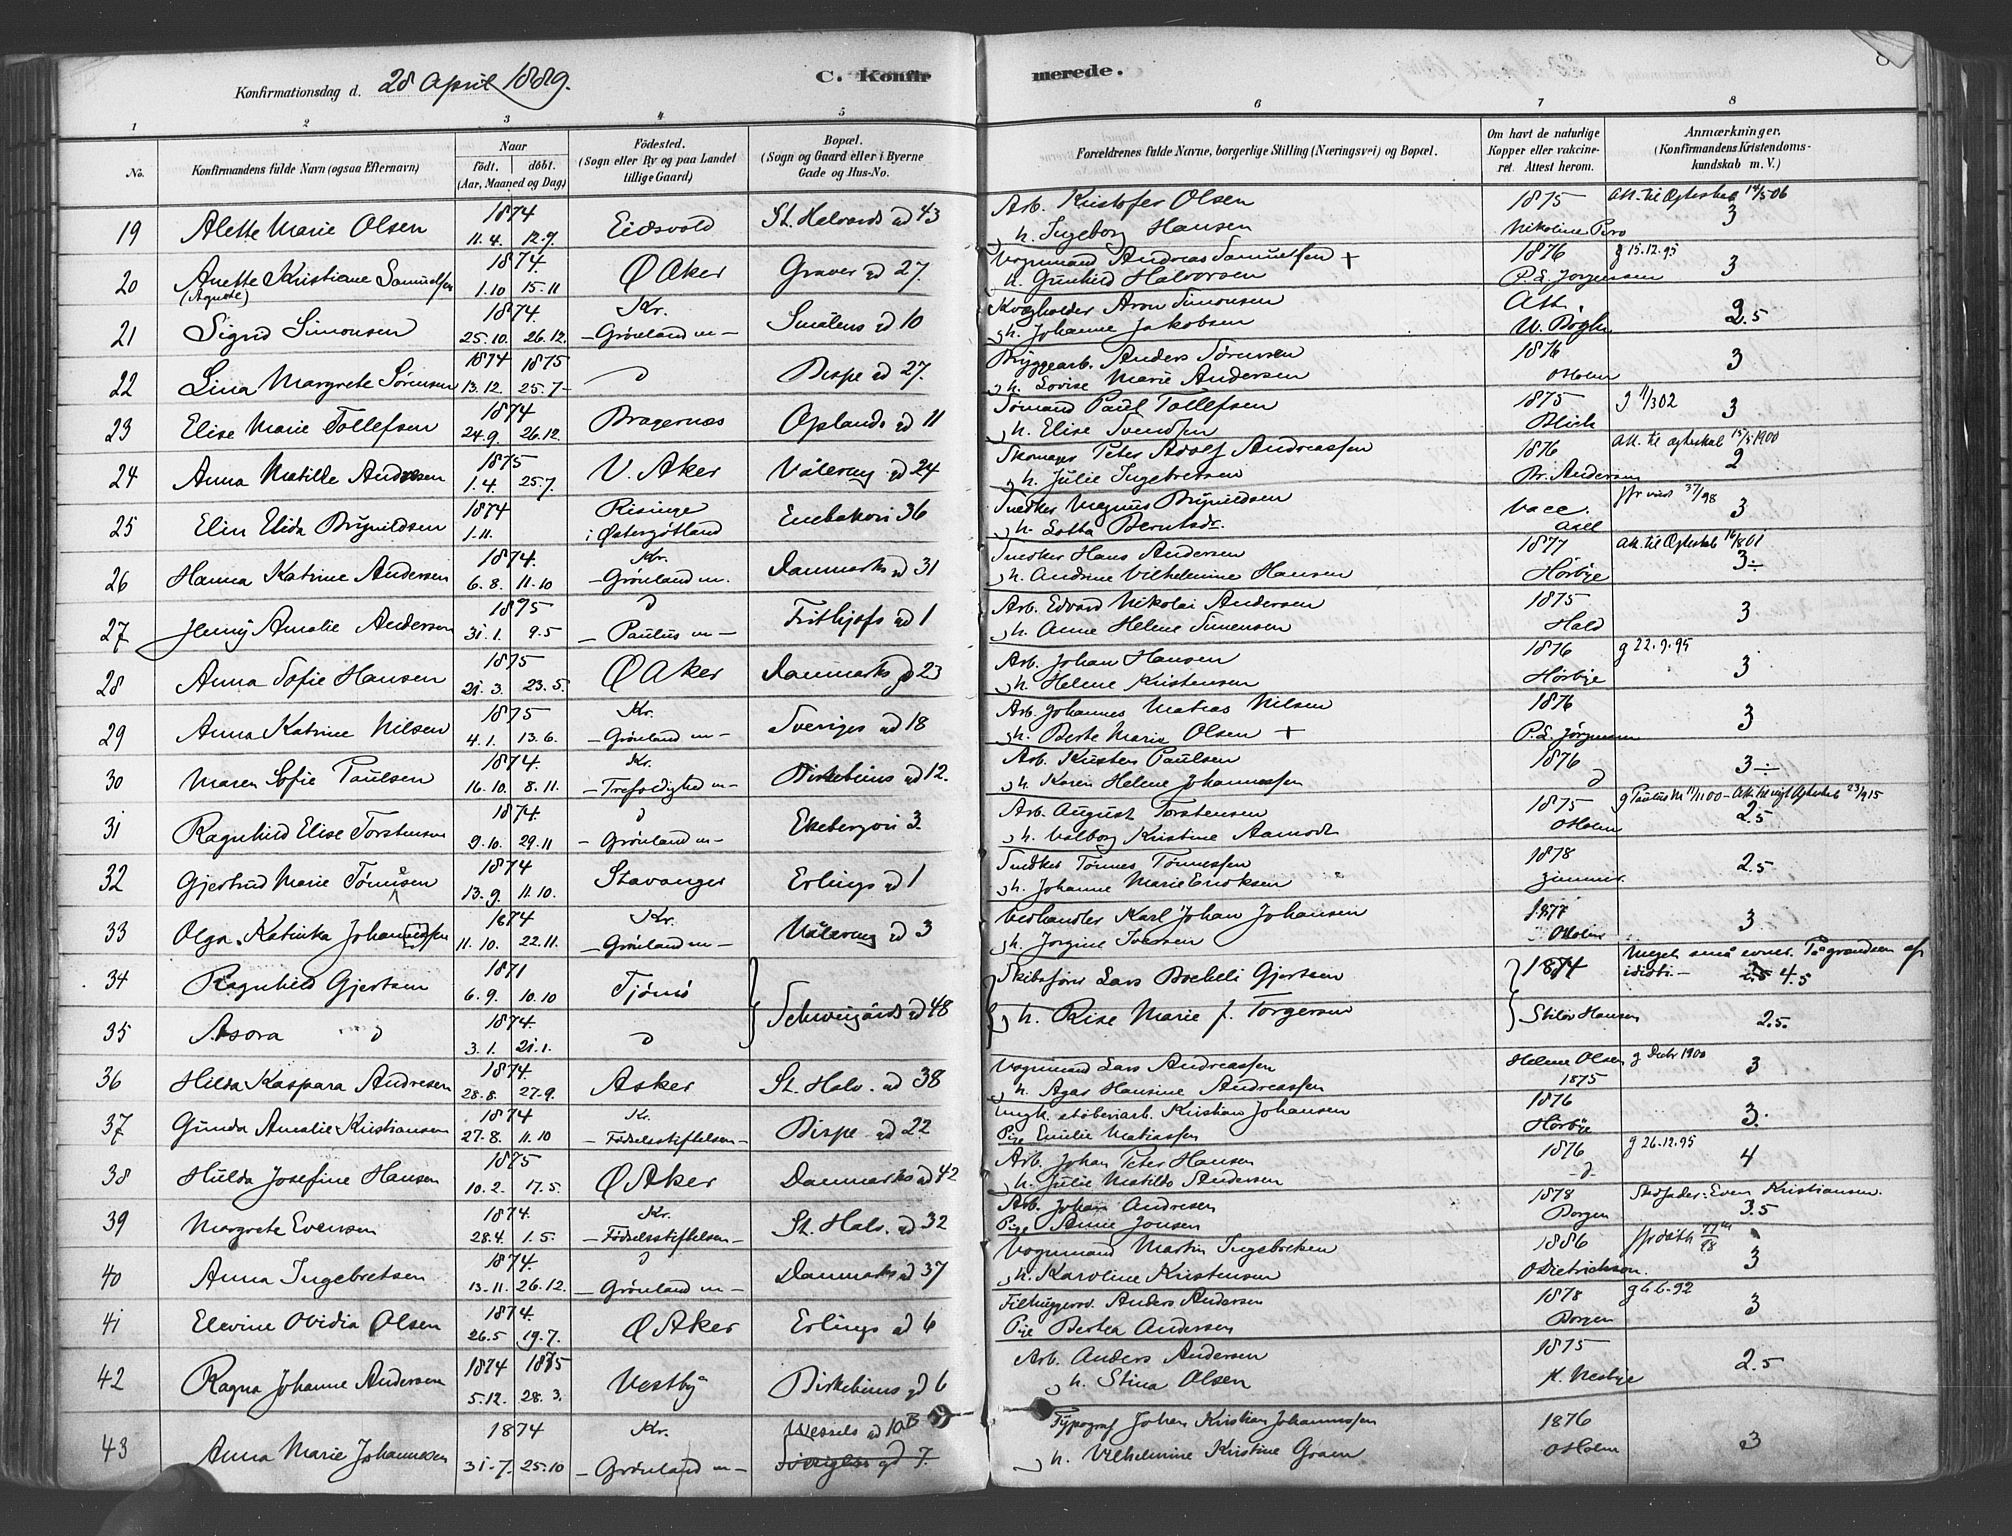 Konfirmationsdag d. 28 April 1889.
C. Konfirmerede.
1 2 3 4 5 6 7 8
No. Konfirmandens fulde Navn (ogsaa Efternavn) Naar Födt. döbt. (Aar, Maaned og Dag) Födested. (Sogn eller By og paa Landet tillige Gaard) Bopæl. (Sogn og Gaard eller i Byerne Gade og Hus-No. Forældrenes fulde Navne, borgerlige Stilling (Næringsvei) og Bopæl. Om havt de naturlige Kopper eller vakcineret. Attest herom. Anmærkninger. (Konfirmandens Kristendomskundskab m. V.)
19 Alette Marie Olsen 1874 11.4. 12.7. Eidsvold St. Halvards gd 43 Arb. Kristofer Olsen 1875 Att. til Ægteskab 14/5 06
h. Ingeborg Hansen Nikoline Piro 3
20 Anette Kristiane Samuelsen (Agnete) 1874. 1.10 15.11 Ø Aker Graver gd 27. Vognmand Andreas Samuelsen + 1876 g 15.12.95
h. Gunhild Halvorsen P.L. Jørgensen 3
21 Sigrid Simonsen 1874 25.10. 26.12. Kr. - Grønland m - Smålens gd 10 Kvægholder Aron Simonsen Att.
h. Johanne Jakobsen 2.5
22 Lina Margrete Sørensen 1874 1875 13.12 25.7 - d Bispe gd 27. Bryggearb. Anders Sørensen 1876
h. Lovise Marie Andersen OHolm 3
23 Elise Marie Tollefsen 1874 24.9. 26.12. Bragernæs Oplands gd 11 Sømand Paul Tollefsen 1875 g 11/3 02
h. Elise Svendsen Blich 3
24 Anna Matilde Andresen 1875 1.4. 25.7. V. Aker Vålereng gd 24 Skomager Peter Adolf Andreassen 1876 Att. til Ægteskab 15/5 1900
h. Julie Ingebretsen Br. Andersen 2
25 Elin Elida Brynildsen 1874 1.11. Risinge i Østergøtland Enebakvei 36 Snedker Magnus Brynildsen vacc.
h. Lotta Berntsdr. Axel 3
26 Hanna Katrine Andersen 1874. 6.8. 11.10 Kr. - Grønland m. Danmarks gd 31 Snedker Hans Andersen 1877 Att. til Ægteskab 16/8 01
h. Andrine Vilhelmine Hansen Hørbye 3÷
27 Jenny Amalie Andersen 1875 31.1. 9.5 d - Paulus m - Frithjofs gd 1 Arb. Edvard Nikolai Andersen 1875
h. Anne Helene Simensen Hald 3
28 Anna Sofie Hansen 1875 21.3. 23.5. Ø Aker Danmarks gd 23 Arb. Johan Hansen 1876 g 22.9.95
h. Helene Kristensen Hørbye 3
29 Anna Katrine Nilsen 1875 4.1. 13.6. Kr. - Grønland m - Sveriges gd 18 Arb. Johannes Matias Nilsen 1876
h. Berte Marie Olsen + P.L. Jørgensen 3
30 Maren Sofie Paulsen 1874. 16.10. 8.11. Kr. - Trefoldighed m - Birkebeins gd 12. Arb. Kristen Paulsen 1876
h. Karen Helene Johannessen d 3 -
31 Ragnhild Elise Torstensen 1874 9.10. 29.11 d - Grønland m - Ekebergvei 3. Arb. August Torstensen 1875 g Paulus M 11/11 00 - Att. til nyt Ægteskab 23/9 15
h. Valborg Kristine Aamodt OHolm 2.5
32 Gjertrud Marie Tønnesen 1874 13.9. 11.10. Stavanger Erlings gd 1 Snedker Tønnes Tønnessen 1878
h. Johanne Marie Eriksen Zimmer. 2.5
33 Olga Katinka Johannessen 1874 11.10. 22.11. Kr. - Grønland m - Vålereng gd 3 Vedhandler Karl Johan Johansen 1877
h. Jorgine Iversen OHolm 3
34 Ragnhild Gjertsen 1871 6.9. 10.10 Tjømø Schweigårds gd 48 Skibsfører Lars Gjertsen 1874 Meget små evner. På grændsen af
idioti - 4.5
35 Asora d 1874. 3.1. 21.1. d h. Rise Marie f. Torgersen Hansen 2.5.
36 Hilda Kaspara Andresen 1874. 28.8. 27.9. Asker St. Halv. gd 38 Vognmand Lars Andreassen Helene Olsen g Decbr 1900
h. Agar Hansine Andreassen 1875 3
37 Gunda Amalie Kristiansen 1874 27.8. 11.10 Kr. - Fødselsstiftelsen - Bispe gd 22. Ungk. støberiarb. Kristian Johansen 1876
Pige Emilie Matiassen Hørbye 3.
38 Hulda Josefine Hansen 1875 10.2. 17.5. Ø Aker Danmarks gd 42 Arb. Johan Peter Hansen 1876 g 26.12.95
h. Julie Matilde Andersen - d - 4
39 Margrete Evensen 1874. 28.4. 1.5. Kr. - Fødselsstiftelsen - St. Halv. gd 32 Arb. Johan Andresen 1878 Stedfader: Even Kristiansen.
Pige Anne Jonsen Borgen 3.5
40 Anna Ingebretsen 1874. 13.11. 26.12. d - Grønland m - Danmarks gd 37 Vognmand Martin Ingebretsen 1886
h. Karoline Kristensen O Dietrichson. 3
41 Elevine Ovidia Olsen 1874. 26.5 19.7. Ø Aker Erlings gd 6 Filhuggersv. Anders Andersen 1878 g 6.6.92
Pige Berthea Andersen Borgen 3
42 Ragna Johanne Andersen 1874 1875 5.12. 28.3. Vestby Birkebeins gd 6 Arb. Anders Andersen 1875
h. Stina Olsen K. Nesbye 2.5
43 Anna Marie Johannesen 1874 31.7. 25.10 Kr. - Grønland m - Wessels gd 10B Sveriges gd 7. Typograf Johan Kristian Johannessen 1876
h. Vilhelmine Kristine Gram OHolm 3